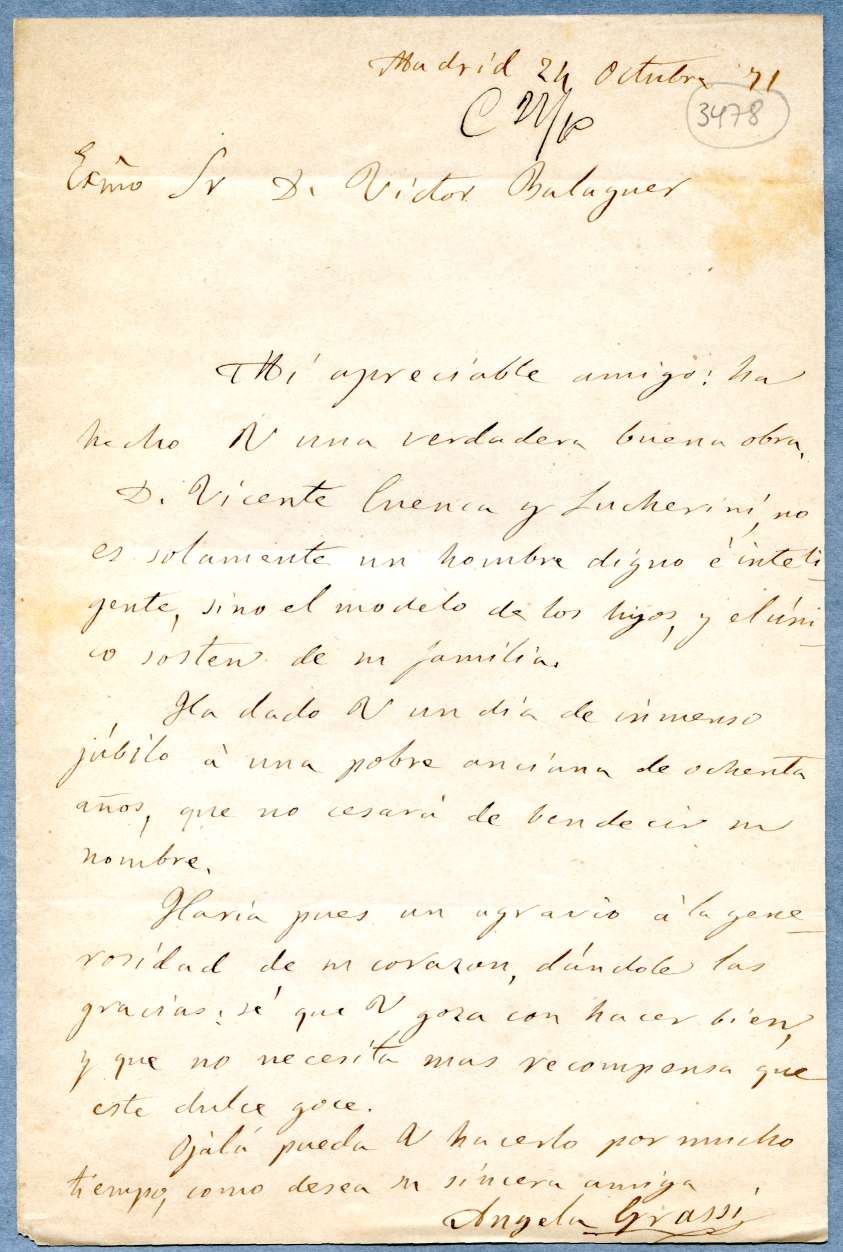 Madrid 24 Octubre 71
C 27/10
3478
Exmo Sr D. Víctor Balaguer
Mi apreciable amigo: ha
hecho V una verdadera buena obra.
D. Vicente Cuenca y Lucherini, no
es solamente un hombre digno é inteli-
gente, sino el modelo de los hijos, y el úni-
co sosten de su familia.
Ha dado V un día de inmenso
júbilo à una pobre anciana de ochenta
años, que no cesará de bendecir su
nombre.
Haria pues un agravio á la gene-
rosidad de su corazon, dándole las
gracias: sé que V goza con hacer bien,
y que no necesita mas recompensa que
este dulce goce.
Ojalá pueda V hacerlo por mucho
tiempo, como desea su sincera amiga
Angela Grassi